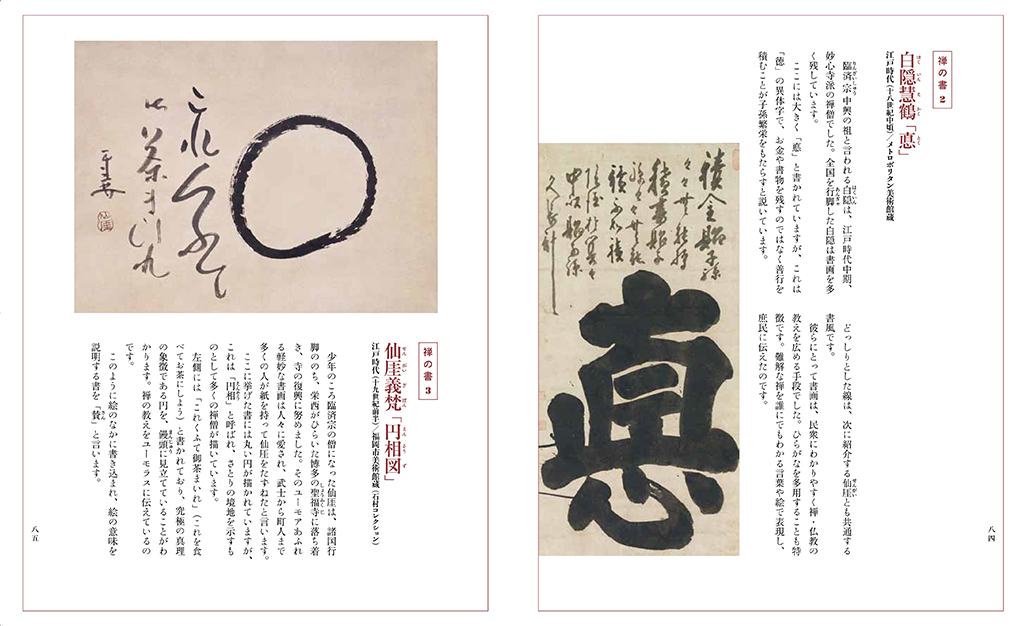 禅の書 2
白隠慧鶴「悳」
江戸時代(十八世紀中頃)/メトロポリタン美術館蔵
臨済宗中興の祖と言われる白隠は、江戸時代中期、
妙心寺派の禅僧でした。全国を行脚した白隠は書画を多
く残しています。
ここには大きく「悳」と書かれていますが、これは
「徳」の異体字で、お金や書物を残すのではなく善行を
積むことが子孫繁栄をもたらすと説いています。
どっしりとした線は、次に紹介する仙厓とも共通する
書風です。
彼らにとって書画は、民衆にわかりやすく禅・仏教の
教えを広める手段でした。ひらがなを多用することも特
徴です。難解な禅を誰にでもわかる言葉や絵で表現し、
庶民に伝えたのです。
悳
八四
これくふて
御茶まいれ
禅の書 3
仙厓義梵「円相図」
江戸時代(十九世紀前半)/福岡市美術館蔵(石村コレクション)
少年のころ臨済宗の僧になった仙厓は、諸国行
脚ののち、栄西がひらいた博多の聖福寺に落ち着
き、寺の復興に努めました。そのユーモアあふれ
る軽妙な書画は人々に愛され、武士から町人まで
多くの人が紙を持って仙厓をたずねたと言います。
ここに挙げた書には丸い円が描かれていますが、
これは「円相」と呼ばれ、さとりの境地を示すも
のとして多くの禅僧が描いています。
左側には「これくふて御茶まいれ」(これを食
べてお茶にしよう)と書かれており、究極の真理
の象徴である円を、饅頭に見立てていることがわ
かります。禅の教えをユーモラスに伝えているの
です。
このように絵のなかに書き込まれ、絵の意味を
説明する書を「賛」と言います。
八五